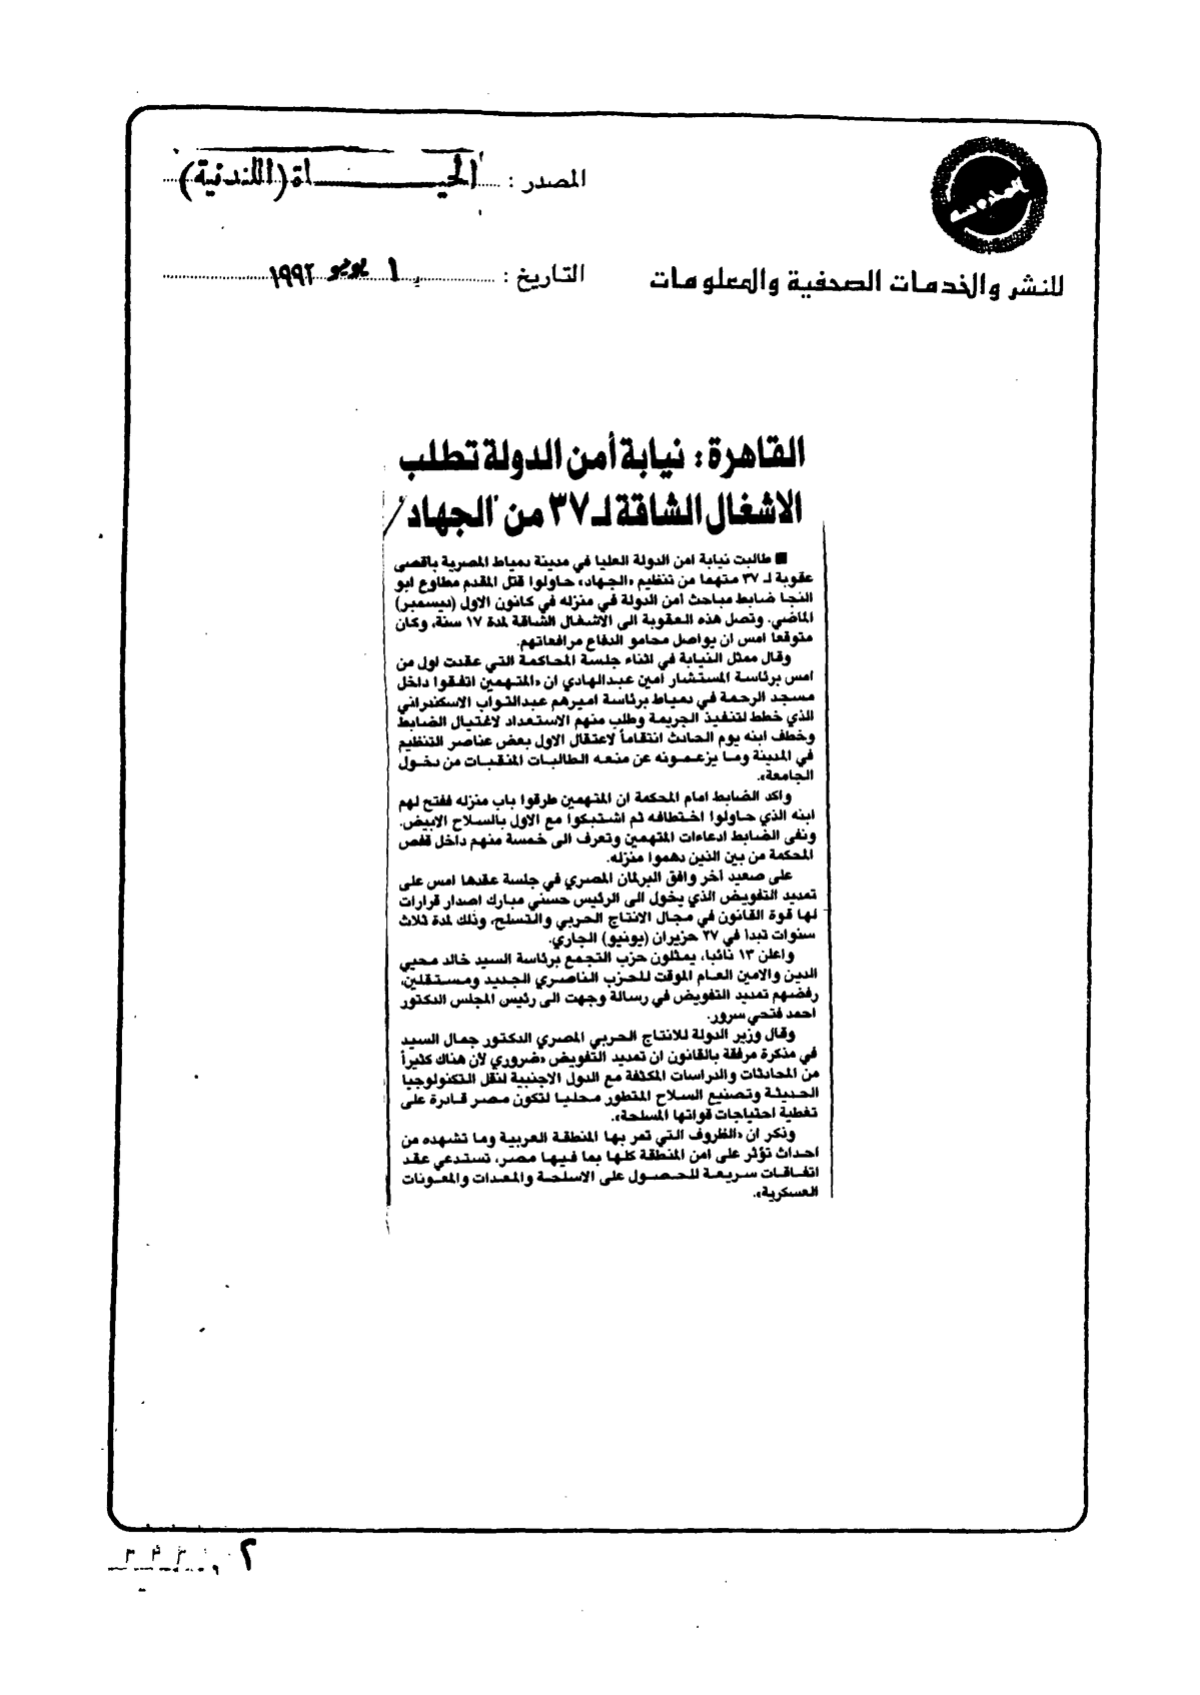 المصدر : الحيـــــاة (اللندنية)
للنشر والخدمات الصحفية والمعلومات
التاريخ : ١ يونيو ١٩٩٢
القاهرة : نيابة أمن الدولة تطلب
الاشغال الشاقة لـ ٣٧ من الجهاد
■ طالبت نيابة امن الدولة العليا في مدينة دمياط المصرية باقصى
عقوبة لـ ٣٧ متهما من تنظيم «الجهاد» حاولوا قتل المقدم مطاوع ابو
النجا ضابط مباحث امن الدولة في منزله في كانون الاول (ديسمبر)
الماضي. وتصل هذه العقوبة الى الاشغال الشاقة لمدة ١٧ سنة، وكان
متوقعا امس ان يواصل محامو الدفاع مرافعاتهم.
وقال ممثل النيابة في اثناء جلسة المحاكمة التي عقدت اول من
امس برئاسة المستشار امين عبدالهادي ان «المتهمين اتفقوا داخل
مسجد الرحمة في دمياط برئاسة اميرهم عبدالتواب الاسكندراني
الذي خطط لتنفيذ الجريمة وطلب منهم الاستعداد لاغتيال الضابط
وخطف ابنه يوم الحادث انتقاماً لاعتقال الاول بعض عناصر التنظيم
في المدينة وما يزعمونه عن منعه الطالبات المنقبات من دخول
الجامعة».
واكد الضابط امام المحكمة ان المتهمين طرقوا باب منزله ففتح لهم
ابنه الذي حاولوا اختطافه ثم اشتبكوا مع الاول بالسلاح الابيض.
ونفى الضابط ادعاءات المتهمين وتعرف الى خمسة منهم داخل قفص
المحكمة من بين الذين دهموا منزله.
على صعيد آخر وافق البرلمان المصري في جلسة عقدها امس على
تمديد التفويض الذي يخول الى الرئيس حسني مبارك اصدار قرارات
لها قوة القانون في مجال الانتاج الحربي والتسلح، وذلك لمدة ثلاث
سنوات تبدأ في ٢٧ حزيران (يونيو) الجاري.
واعلن ١٣ نائبا، يمثلون حزب التجمع برئاسة السيد خالد محيي
الدين والامين العام الموقت للحزب الناصري الجديد ومستقلين،
رفضهم تمديد التفويض في رسالة وجهت الى رئيس المجلس الدكتور
احمد فتحي سرور.
وقال وزير الدولة للانتاج الحربي المصري الدكتور جمال السيد
في مذكرة مرفقة بالقانون ان تمديد التفويض «ضروري لأن هناك كثيراً
من المحادثات والدراسات المكثفة مع الدول الاجنبية لنقل التكنولوجيا
الحديثة وتصنيع السلاح المتطور محليا لتكون مصر قادرة على
تغطية احتياجات قواتها المسلحة».
وذكر ان «الظروف التي تمر بها المنطقة العربية وما تشهده من
احداث تؤثر على امن المنطقة كلها بما فيها مصر، تستدعي عقد
اتفاقات سريعة للحصول على الاسلحة والمعدات والمعونات
العسكرية».